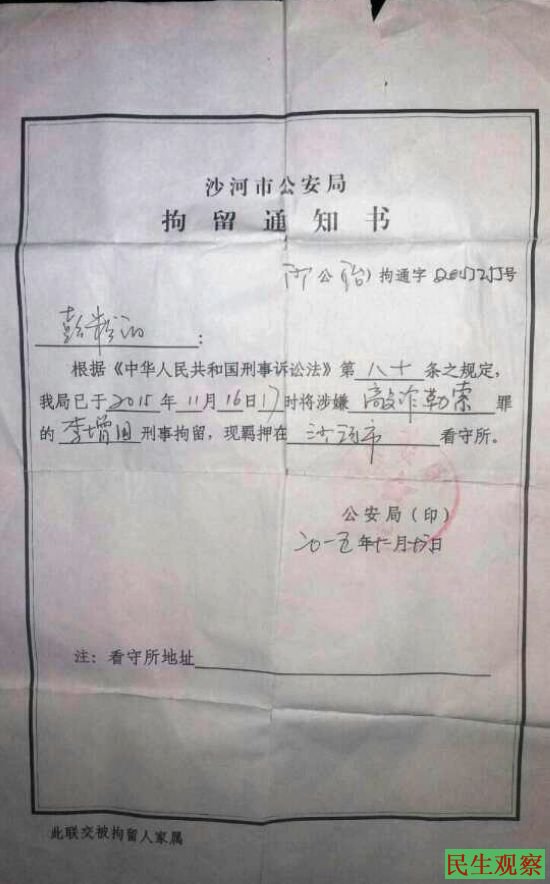 沙河市公安局
拘留通知书
公 ）拘通字 号
：
根据《中华人民共和国刑事诉讼法》第八十条之规定，
我局已于2015年11月16日17时将涉嫌敲诈勒索罪
的李增国刑事拘留，现羁押在沙河市看守所。
公安局（印）
二〇一五年十一月十六日
注：看守所地址
此联交被拘留人家属
民生观察